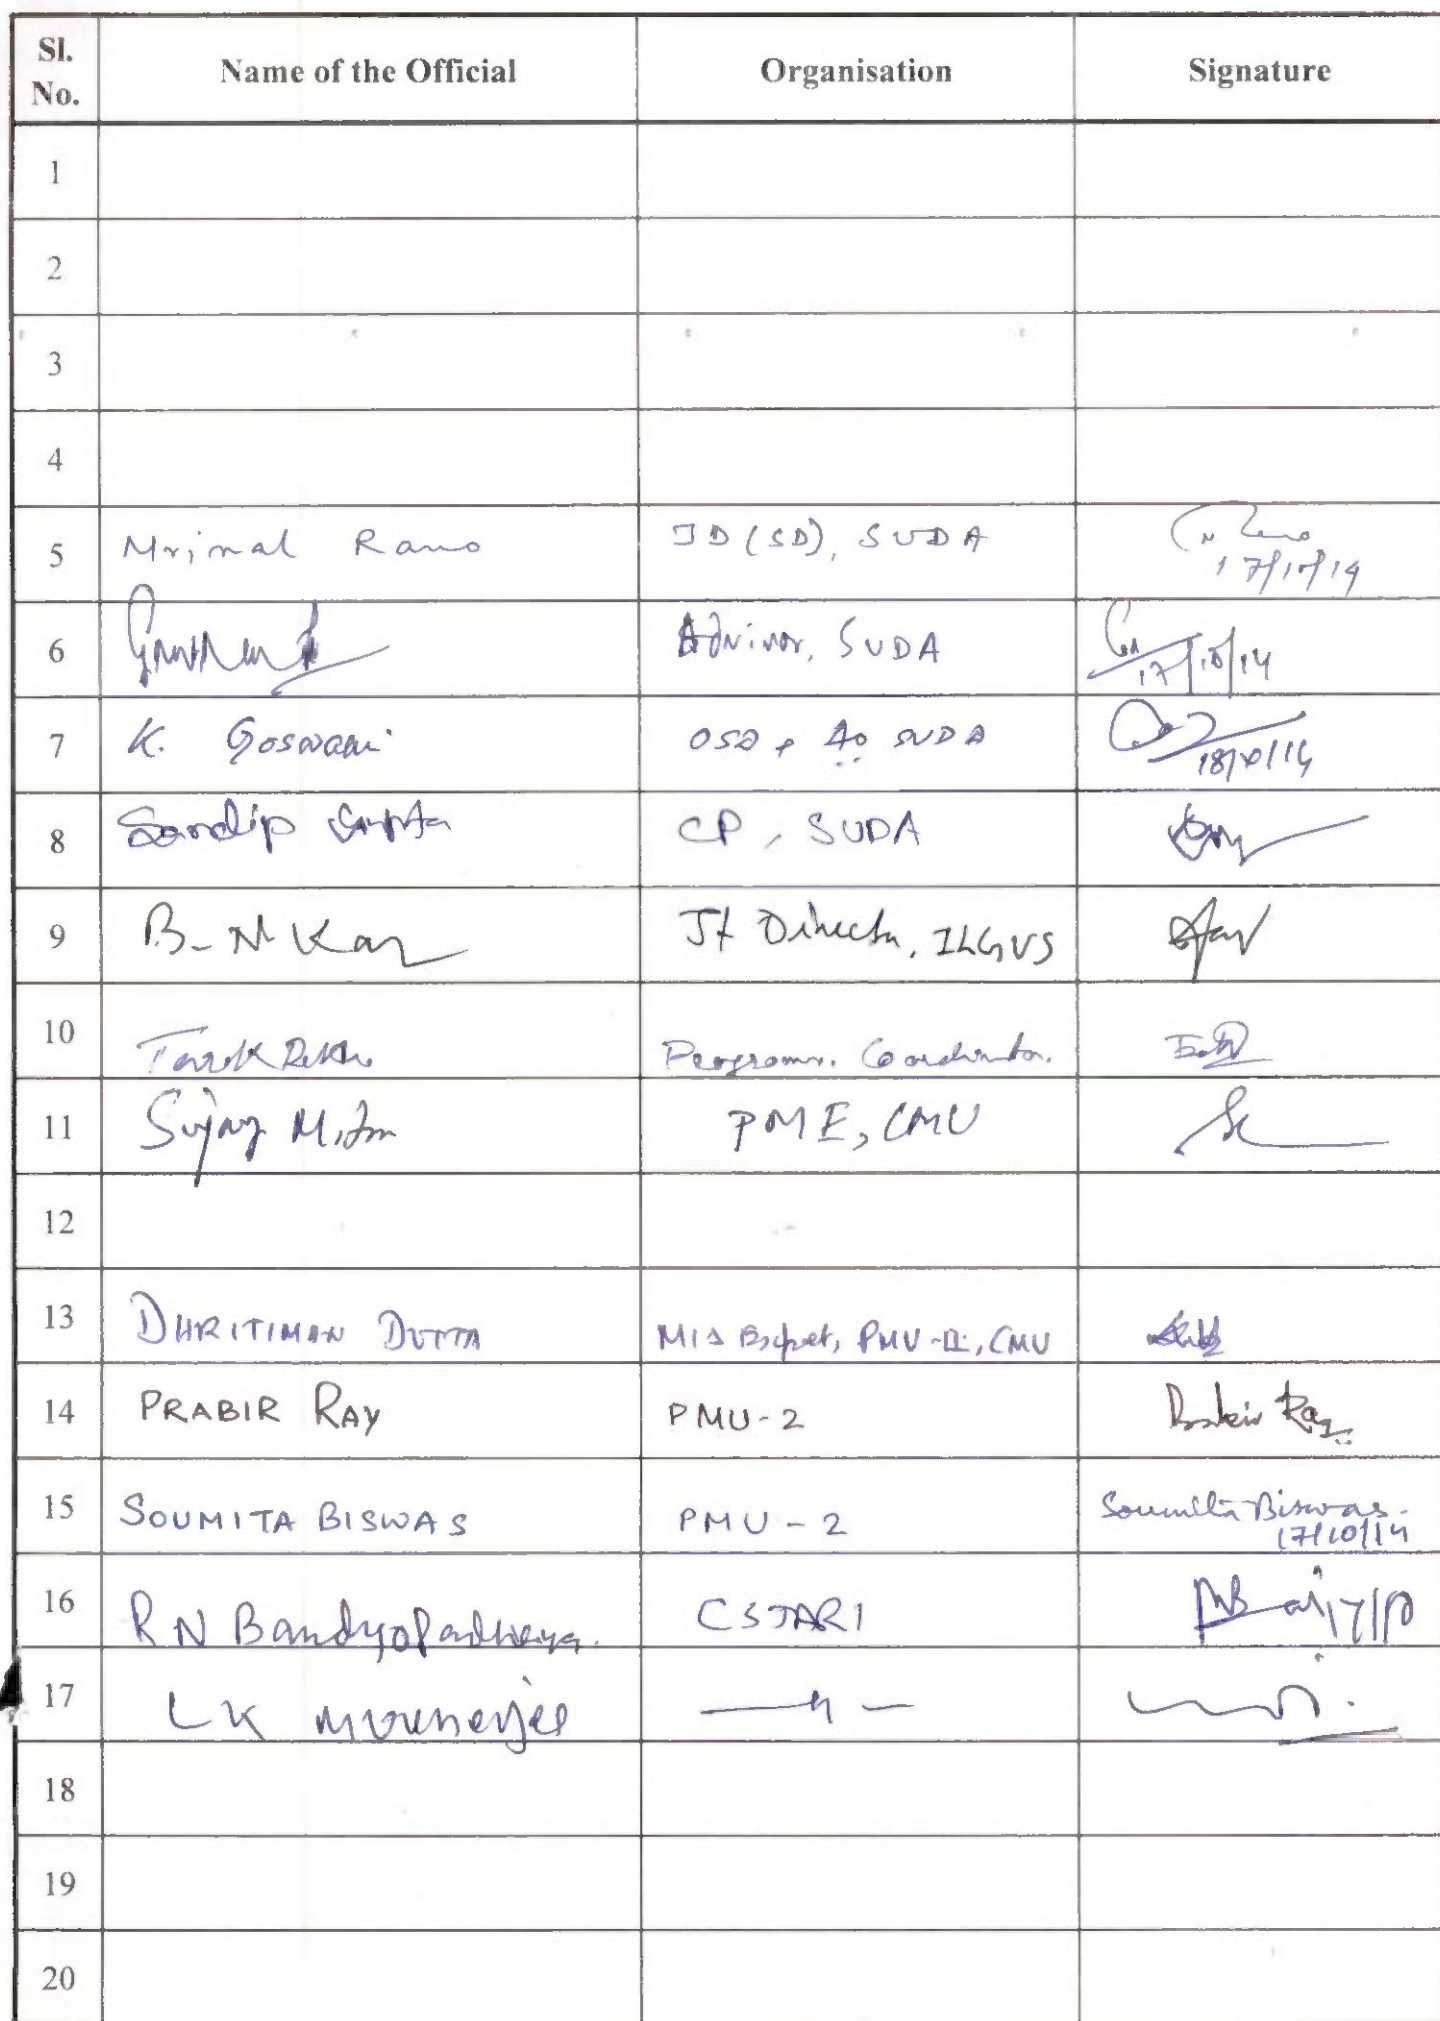 Sl. No. Name of the Official Organisation Signature
1
2
3
4
5 Mrinal Rano JD (SD), SUDA 17/10/14
6 Advisor, SUDA 17/10/14
7 K. Goswami OSD & AO SUDA 18/10/14
8 Sandip Gupta CP, SUDA
9 B-N Kar Jt Director, ILGUS
10 Tarak Programme Coordinator.
11 Sujay Mitra PME, CMU
12
13 DHRITIMAN DUTTA MIS Expert, PMU-II, CMU
14 PRABIR RAY PMU-2 Prabir Ray
15 SOUMITA BISWAS PMU-2 Soumita Biswas. 17/10/14
16 RN Bandyopadhyay. CSTARI 17/10
17 LK Mukherjee — 〃 —
18
19
20